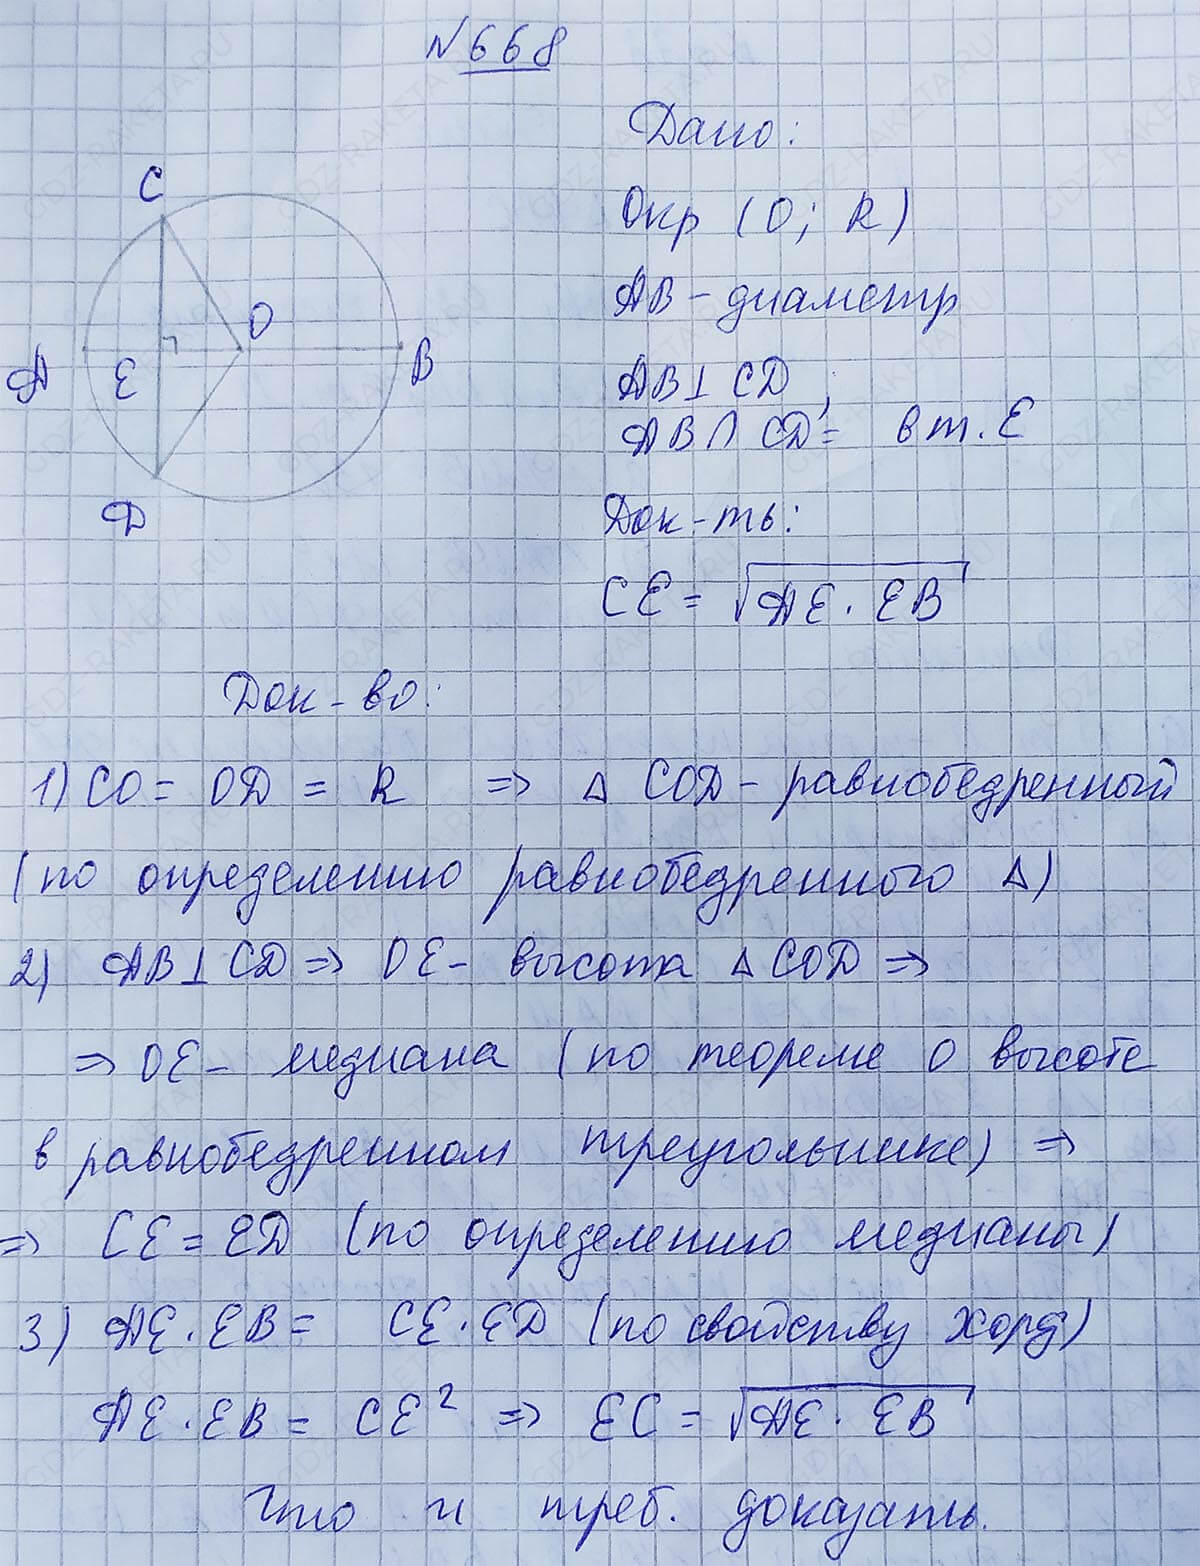 N 668
Дано:
Окр (O; R)
AB - диаметр
AB ⊥ CD ;
AB ∩ CD = в т. E
Док-ть:
CE = √AE · EB
C
O
A
E
B
D
Док-во:
1) CO = OD = R => △ COD - равнобедренный
(по определению равнобедренного △)
2) AB ⊥ CD => OE - высота △ COD =>
=> OE - медиана (по теореме о высоте
в равнобедренном треугольнике) =>
=> CE = ED (по определению медианы)
3) AE · EB = CE · ED (по свойству хорд)
AE · EB = CE² => EC = √AE · EB
Что и треб. доказать.
GDZ-RAKETA.RU